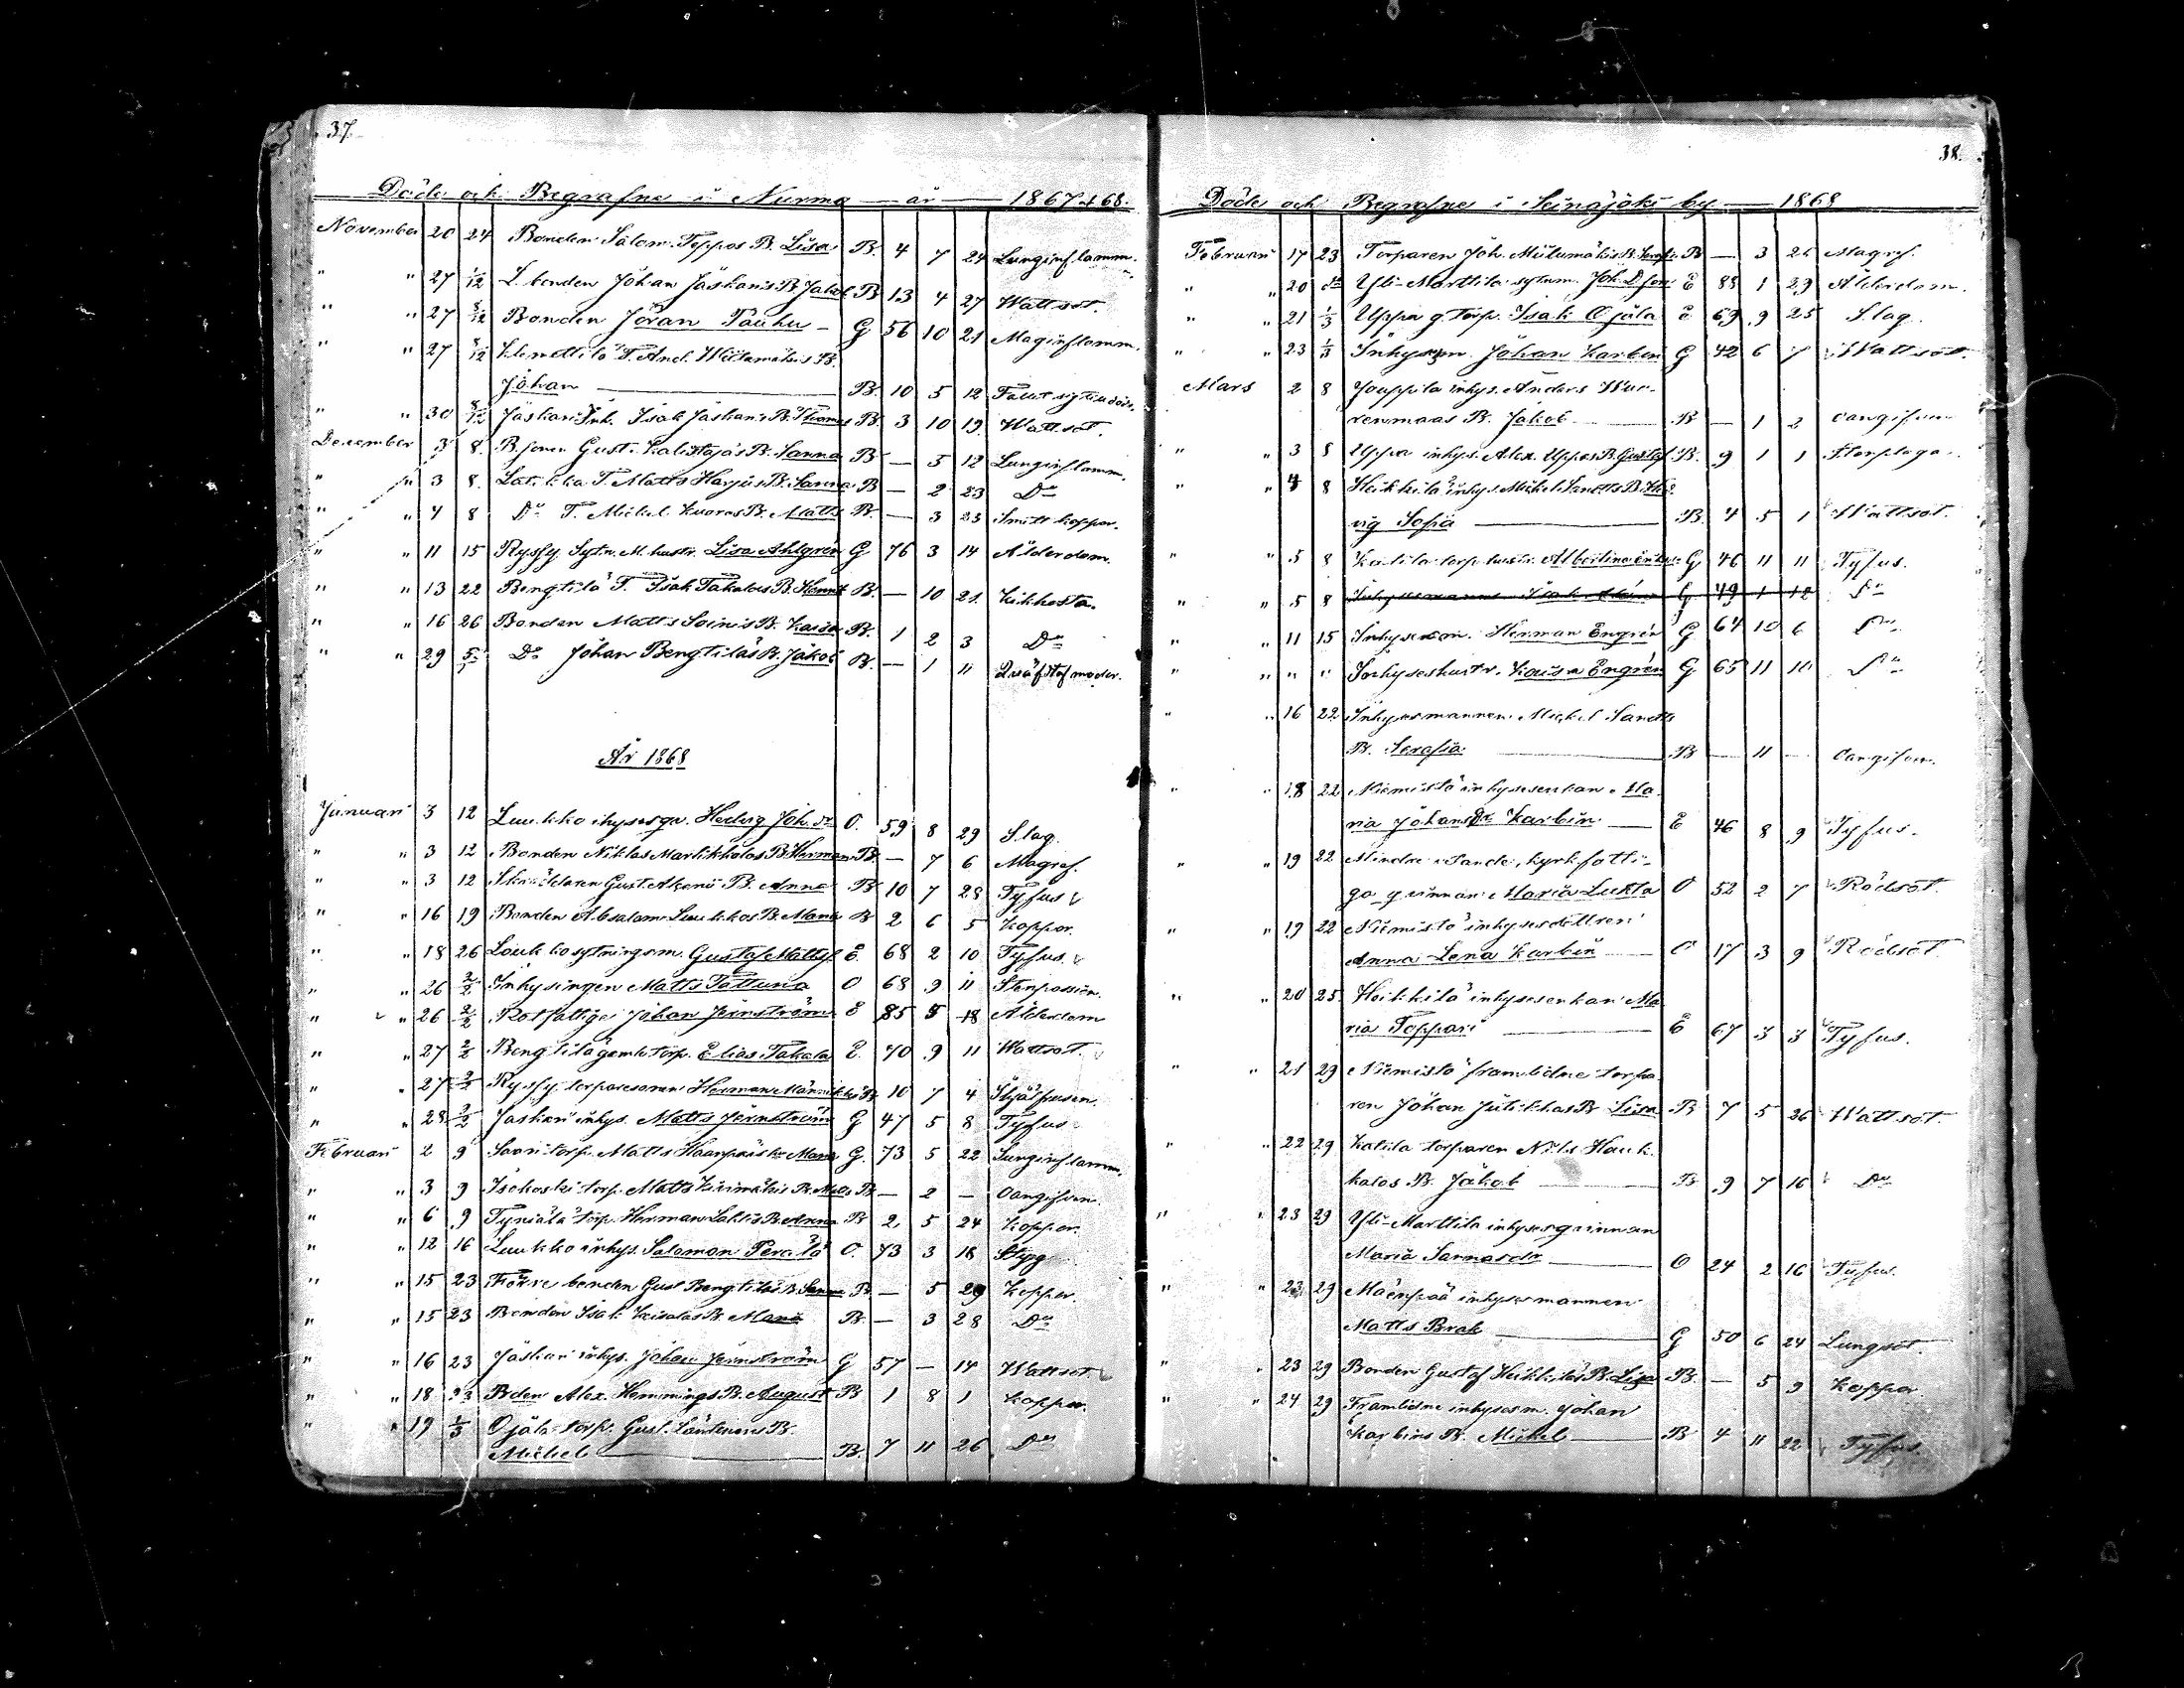 37.
Döde och Begrafne i Nurmo år 1867 & 68.
November 20 24 Bonden Salom. Toppos B. Lisa B. 4 7 24 Lunginflamm.
" " 27 1/12 L. bonden Johan Jäskaris B. Jakob B 13 4 27 Wattsot.
" " 27 8/12 Bonden Jöran Pauhu G 56 10 21 Maginflamm.
" " 27 8/12 T. And. B.
Johan B. 10 5 12
" " 30 8/12 Jäskari Inh. Isak Jäskaris B. Thomas B. 3 10 19 Wattsot.
December 3 8. Gust. B. Sanna B — 5 12 Lunginflamm.
" " 3 8. T. Matts Harjus B. Sanna B — 2 23 Do
" " 4 8 Do T. Mickel Kuoros B. Matts B. — 3 23 Smittkoppor.
" " 11 15 Ryssy. Sytn. M. hustr. Lisa Ahlgrén G 76 3 14 Ålderdom.
" " 13 22 Bengtilä T. Isak Takalas B. B. — 10 21. Kikhosta.
" " 16 26 Bonden Matts Soinis B. Kaisa B. 1 2 3 Do
" " 29 5/1 Do Johan Bengtiläs B. Jakob B. — 1 11 Qväfd af moder.
År 1868
Januari 3 12 Luukko ihysesqv. Hedvig Joh. dr O. 59 8 29 Slag.
" " 3 12 Bonden Niklas Marttikkalas B. Herman B. — 7 6 Magref.
" " 3 12 Skräddaren Gust. B. Anna B 10 7 28 Tyfus
" " 16 19 Bonden Absalom Luukkos B. Maria B 2 6 5 Koppor.
" " 18 26 Loukko sytningsm. Gustaf Mattsf. E. 68 2 10 Tyfus.
" " 26 2/2 Inhysingen Matts Tattuna O 68 9 11 Stenpassion.
" " 26 2/2 Rotfattige Johan Jernström E 85 5 18 Ålderdom
" " 27 2/2 Bengtilä gamle torp. Elias Takala E. 70 9 11 Wattsot.
" " 27 2/2 Ryssy. torparesonen Herman B. 10 7 4
" " 28 2/2 Jäskari inhys. Matts Jernström G 47 5 8 Tyfus
Februari 2 9 torp. Matts Maria G. 73 5 22 Lunginflamm.
" " 3 9 torp. Matts Kivimäkis B. Matts B. — 2 — Oangifven.
" " 6 9 torp. Herman Lahtis B. Anna B 2. 5 24 Koppor.
" " 12 16 Luukko inhys. Salomon Perälä O. 73 3 18 Styng
" " 15 23 Förre bonden Gust Bengtiläs B. Sanna B. — 5 29 Koppor.
" " 15 23 Bonden Isak B. Maria B. — 3 28 Do
" " 16 23 Jäskari inhys. Johan Jernström G 57 — 14 Wattsot.
" " 18 23 Bden Alex. Hemmings B. August B 1 8 1 Koppor.
" " 19 1/3 Ojala torp. Gust. B.
Mickel B. 7 11 26 Do
38.
Döde och Begrafne i Seinäjoki by 1868
Februari 17 23 Torparen Joh. B. B — 3 26 Magref.
" " 20 Yli-Marttila sytnm. Joh. E 88 1 29 Ålderdom.
" " 21 1/3 Uppa g. torp. Isak Ojala E 69 9 25 Slag.
" " 23 1/3 Inhysesm. Johan Karbin G 42 6 7 Wattsot.
Mars 2 8 Jouppila inhys. Anders
B. Jakob B — 1 2 oangifven
" " 3 8 Uppa inhys. Alex. Uppas B. Gustaf B. 9 1 1
" " 4 8 Heikkilä inhys. Mickel B. Hed-
vig Sofia B. 4 5 1 Wattsot.
" " 5 8 Katila torp. hustr. Albertina G 46 11 11 Tyfus.
" " 5 8 Inhysesmannen Isak G. 49 1 12 Do
" " 11 15 Inhysesm. Herman Engrén G 64 10 6 Do
" " " " Inhyseshustr. Kaisa Engrén G 65 11 10 Do
" " 16 22 Inhysesmannen Mickel
B. Serafia B — 11 — oangifven.
" " 18 22 Niemistö inhysesenkan Ma-
ria Johansdr Karbin E 46 8 9 Tyfus.
" " 19 22 Mindre Sande, kyrkfatti-
ga qvinnan Maria Lukta O 52 2 7 Rödsot.
" " 19 22 Niemistö inhysesdottren
Anna Lena Karbin O 17 3 9 Rödsot
" " 20 25 Heikkilä inhysesenkan Ma-
ria Toppari E 67 3 3 Tyfus.
" " 21 29 Niemistö framlidne torpa-
ren Johan B Lisa B 7 5 26 Wattsot.
" " 22 29 Katila torparen Nils Hauk-
kalas B. Jakob B 9 7 16 Do
" " 23 29 Yli-Marttila inhysesqvinnan
Maria O 24 2 16 Tyfus.
" " 23 29 Mäenpää inhysesmannen
Matts Brak G 50 6 24 Lungsot.
" " 23 29 Bonden Gustaf Heikkiläs B. Lisa B. — 5 9 Koppor.
" " 24 29 Framlidne inhysesm. Johan
Karbins B. Mickel B 4 11 22 Tyfus.